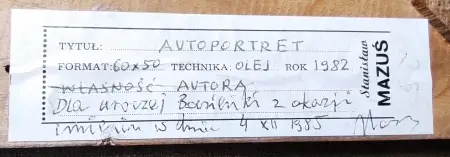 TYTUŁ: AUTOPORTRET
FORMAT: 60x50 TECHNIKA: OLEJ ROK 1982
WŁASNOŚĆ AUTORA
Dla uroczej Basieńki z okazji
imienin w dniu 4 XII 1985
Stanisław
MAZUŚ